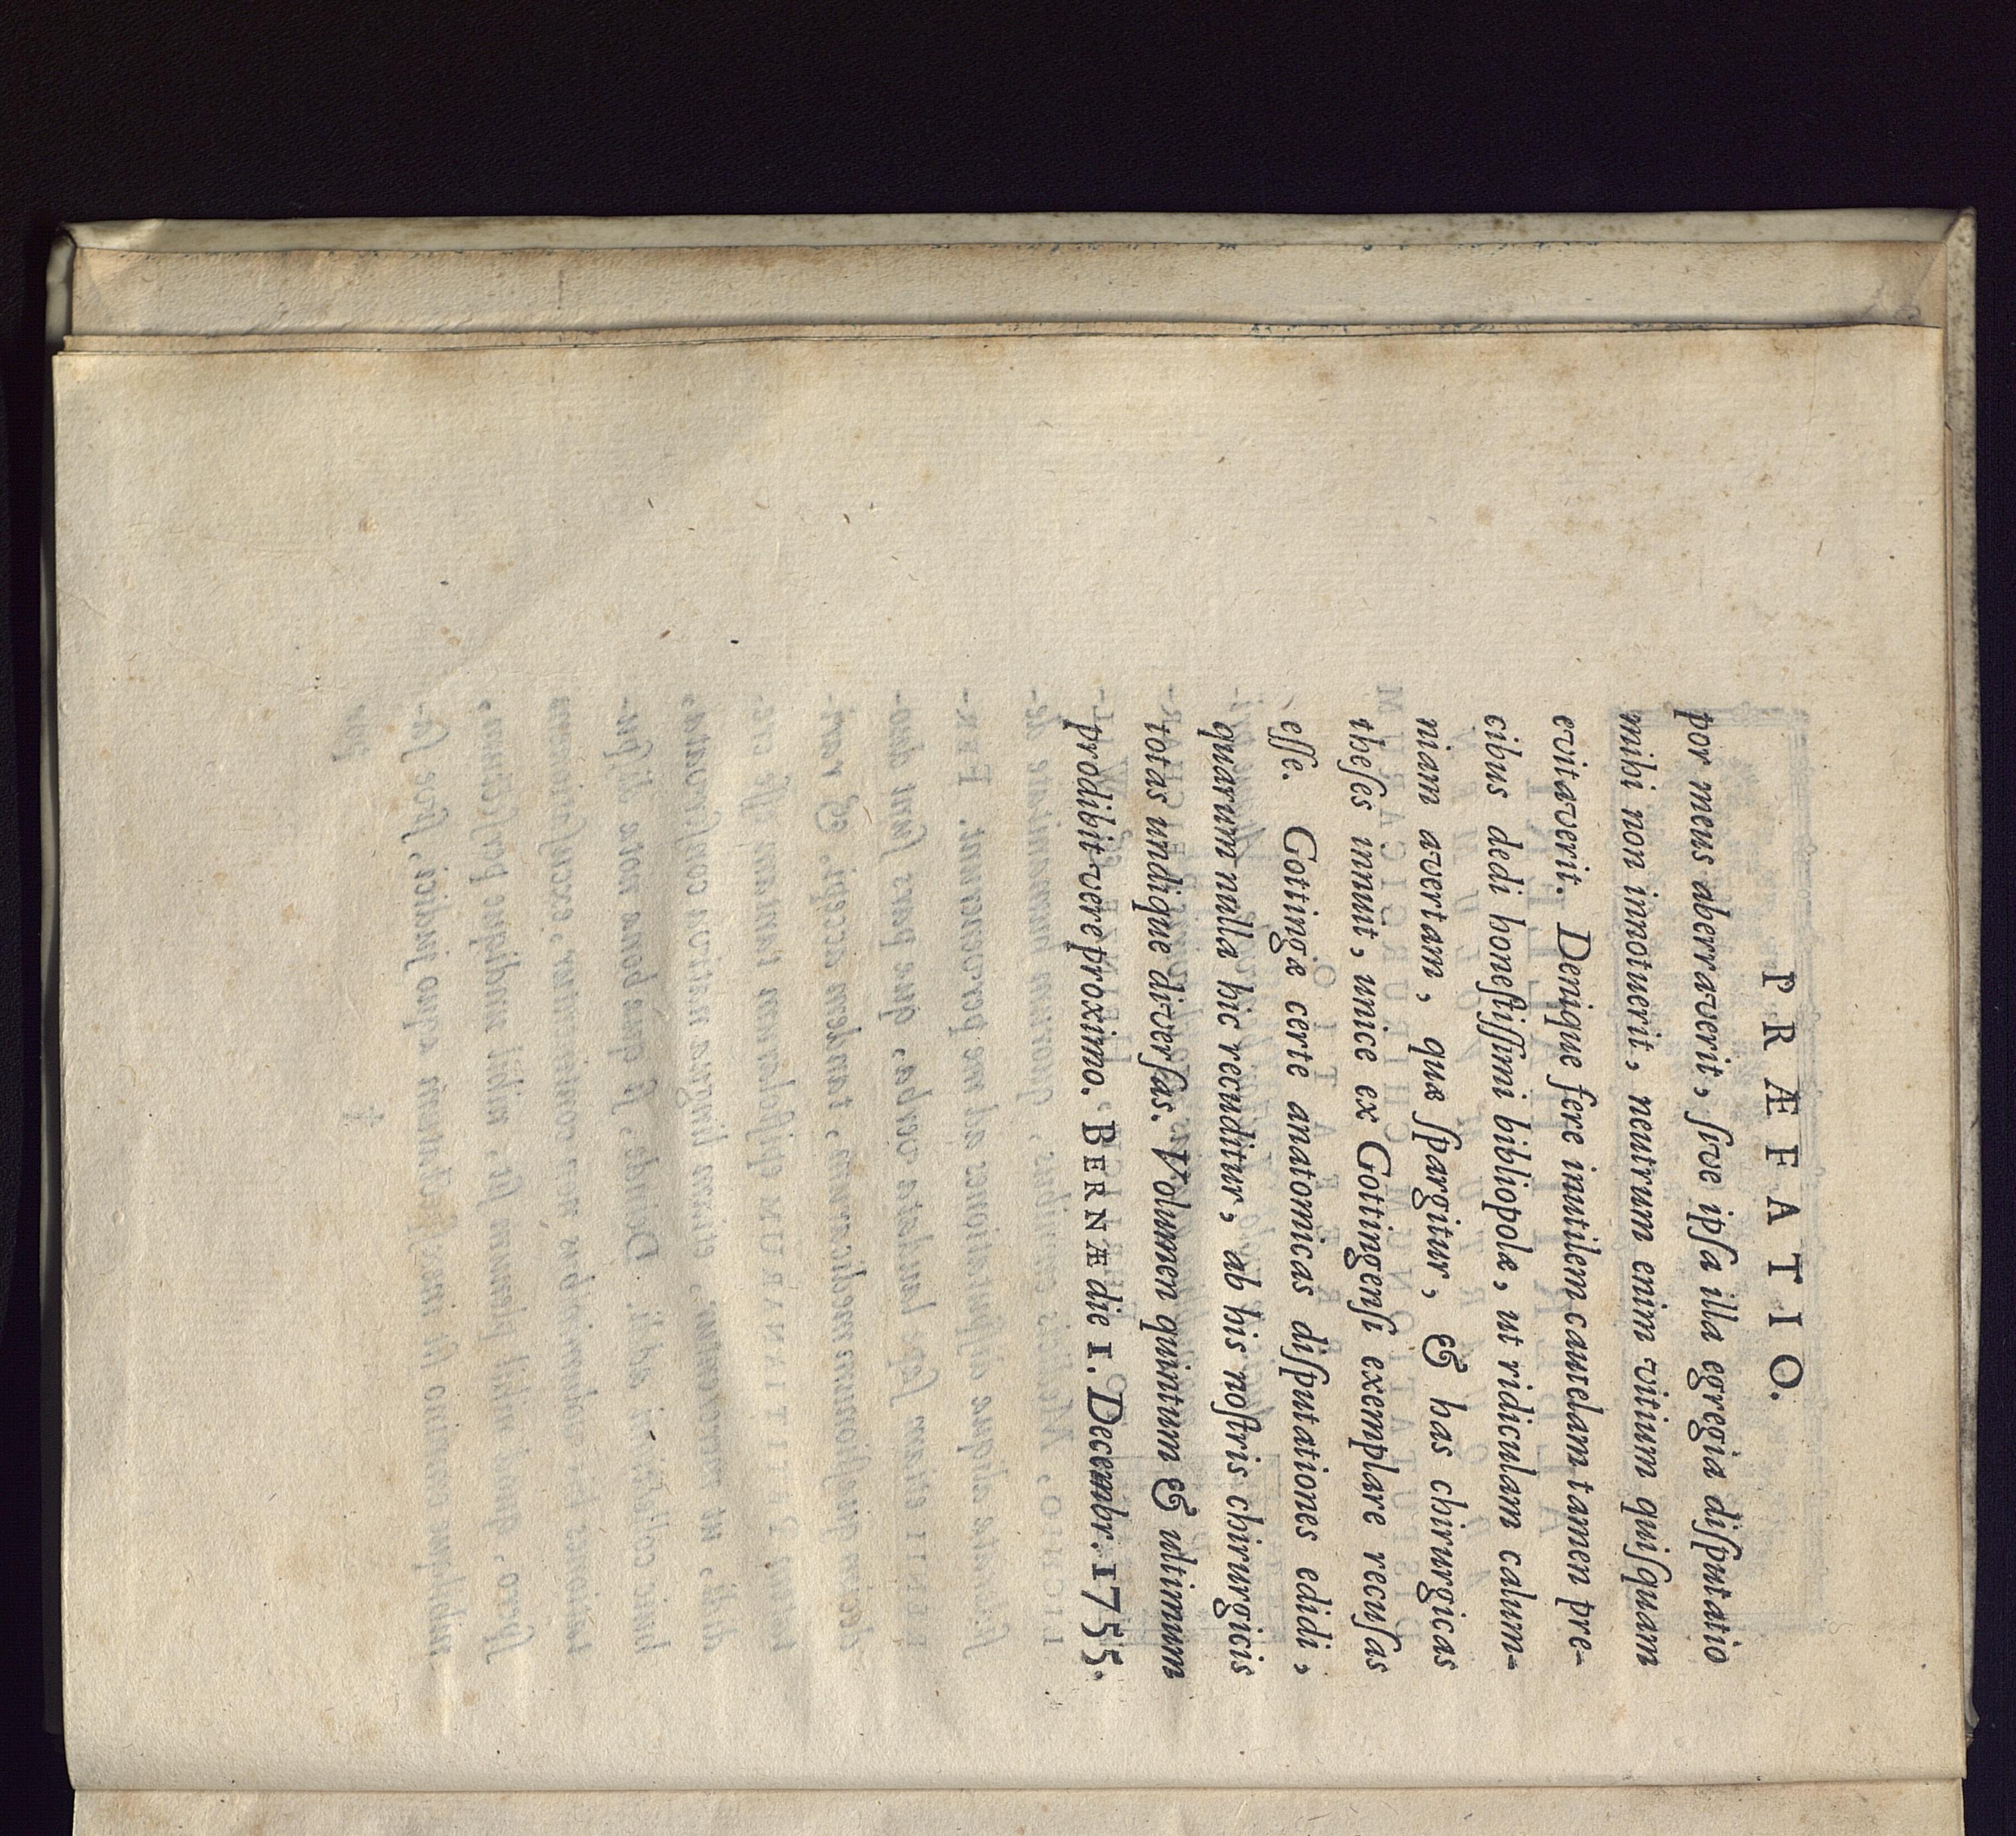 PRÆFATIO.
por meus aberraverit, ſive ipſa illa egregia diſputatio
mihi non innotuerit, neutrum enim vitium quiſquam
evitaverit. Denique fere inutilem cautelam tamen pre-
cibus dedi honeſtiſſimi bibliopolæ, ut ridiculam calum-
niam avertam, quæ ſpargitur, & has chirurgicas
theſes innuit, unice ex Gottingenſi exemplare recuſas
eſſe. Gottingæ certe anatomicas diſputationes edidi,
quarum nulla hic recuditur, ab his noſtris chirurgicis
totas undique diverſas. Volumen quintum & ultimum
prodibit vere proximo. BERNÆ die 1. Decembr. 1755.